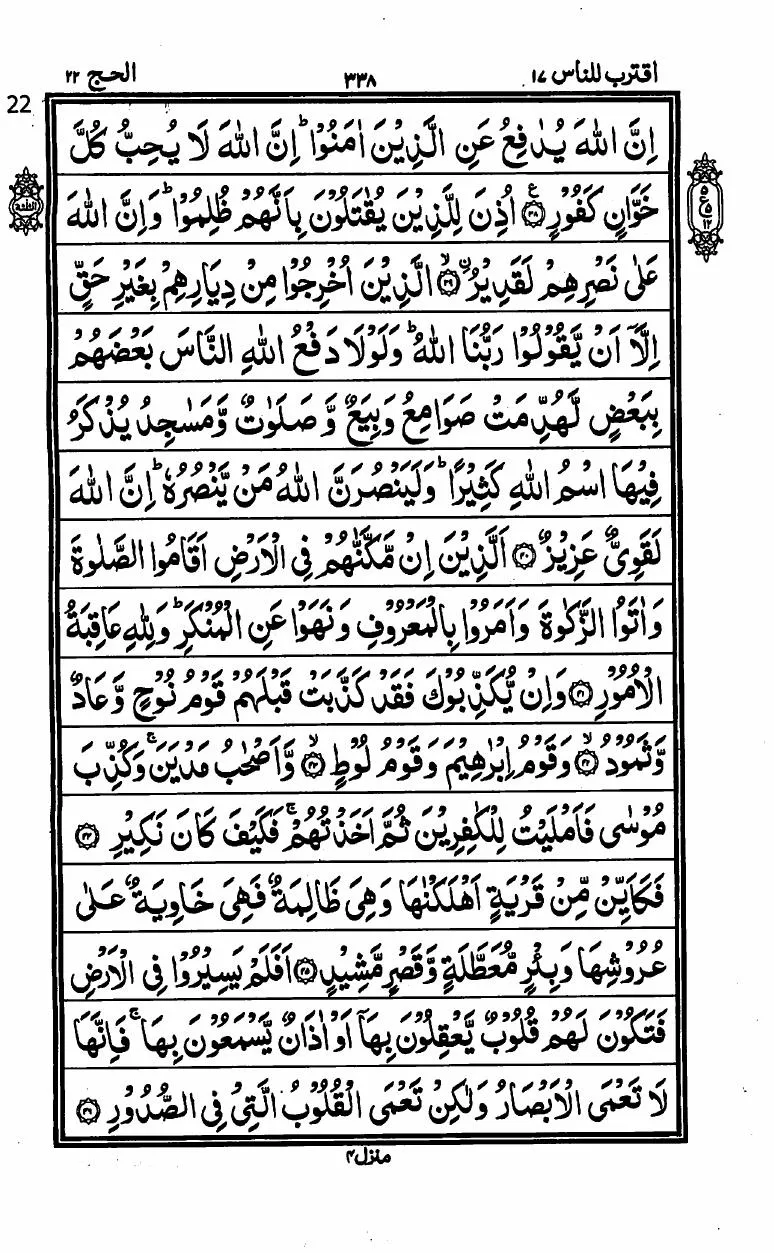 اقترب للناس ١٧
٣٣٨
الحج ٢٢
22
اِنَّ اللّٰهَ يُدٰفِعُ عَنِ الَّذِيْنَ اٰمَنُوْا ؕ اِنَّ اللّٰهَ لَا يُحِبُّ كُلَّ
خَوَّانٍ كَفُوْرٍ ۧ ﴿٣٨﴾ اُذِنَ لِلَّذِيْنَ يُقٰتَلُوْنَ بِاَنَّهُمْ ظُلِمُوْا ؕ وَاِنَّ اللّٰهَ
عَلٰى نَصْرِهِمْ لَقَدِيْرُ ۙ ﴿٣٩﴾ ۨالَّذِيْنَ اُخْرِجُوْا مِنْ دِيَارِهِمْ بِغَيْرِ حَقٍّ
اِلَّاۤ اَنْ يَّقُوْلُوْا رَبُّنَا اللّٰهُ ؕ وَلَوْلَا دَفْعُ اللّٰهِ النَّاسَ بَعْضَهُمْ
بِبَعْضٍ لَّهُدِّمَتْ صَوَامِعُ وَبِيَعٌ وَّ صَلَوٰتٌ وَّمَسٰجِدُ يُذْكَرُ
فِيْهَا اسْمُ اللّٰهِ كَثِيْرًا ؕ وَلَيَنْصُرَنَّ اللّٰهُ مَنْ يَّنْصُرُهٗ ؕ اِنَّ اللّٰهَ
لَقَوِيٌّ عَزِيْزٌ ﴿٤٠﴾ اَلَّذِيْنَ اِنْ مَّكَّنّٰهُمْ فِى الْاَرْضِ اَقَامُوا الصَّلٰوةَ
وَاٰتَوُا الزَّكٰوةَ وَاَمَرُوْا بِالْمَعْرُوْفِ وَنَهَوْا عَنِ الْمُنْكَرِ ؕ وَلِلّٰهِ عَاقِبَةُ
الْاُمُوْرِ ﴿٤١﴾ وَاِنْ يُّكَذِّبُوْكَ فَقَدْ كَذَّبَتْ قَبْلَهُمْ قَوْمُ نُوْحٍ وَّعَادٌ
وَّثَمُوْدُ ۙ ﴿٤٢﴾ وَقَوْمُ اِبْرٰهِيْمَ وَقَوْمُ لُوْطٍ ۙ ﴿٤٣﴾ وَّاَصْحٰبُ مَدْيَنَ ۚ وَكُذِّبَ
مُوْسٰى فَاَمْلَيْتُ لِلْكٰفِرِيْنَ ثُمَّ اَخَذْتُهُمْ ۚ فَكَيْفَ كَانَ نَكِيْرِ ﴿٤٤﴾
فَكَاَيِّنْ مِّنْ قَرْيَةٍ اَهْلَكْنٰهَا وَهِىَ ظَالِمَةٌ فَهِىَ خَاوِيَةٌ عَلٰى
عُرُوْشِهَا وَبِئْرٍ مُّعَطَّلَةٍ وَّقَصْرٍ مَّشِيْدٍ ﴿٤٥﴾ اَفَلَمْ يَسِيْرُوْا فِى الْاَرْضِ
فَتَكُوْنَ لَهُمْ قُلُوْبٌ يَّعْقِلُوْنَ بِهَاۤ اَوْ اٰذَانٌ يَّسْمَعُوْنَ بِهَا ۚ فَاِنَّهَا
لَا تَعْمَى الْاَبْصَارُ وَلٰكِنْ تَعْمَى الْقُلُوْبُ الَّتِىْ فِى الصُّدُوْرِ ﴿٤٦﴾
منزل ٤